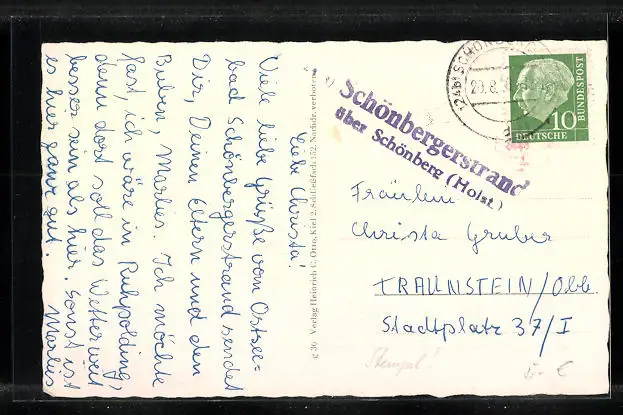 Liebe Christa!
Viele liebe Grüße vom Ostsee-
bad Schönbergerstrand sendet
Dir, Deinen Eltern und den
Buben, Marlies. Ich möchte
fast, ich wäre in Ruhpolding,
denn dort soll das Wetter weit
besser sein als hier. Sonst ist
es hier ganz gut.
Marlies
Verlag Heinrich C. Otto, Kiel 2, Schließfach 152. Nachdr. verboten
Schönbergerstrand
über Schönberg (Holst.)
(24b) SCHÖNBERG
DEUTSCHE
BUNDESPOST
10
Fräulein
Christa Gruber
TRAUNSTEIN/Obb.
Stadtplatz 37/I
Stempel!